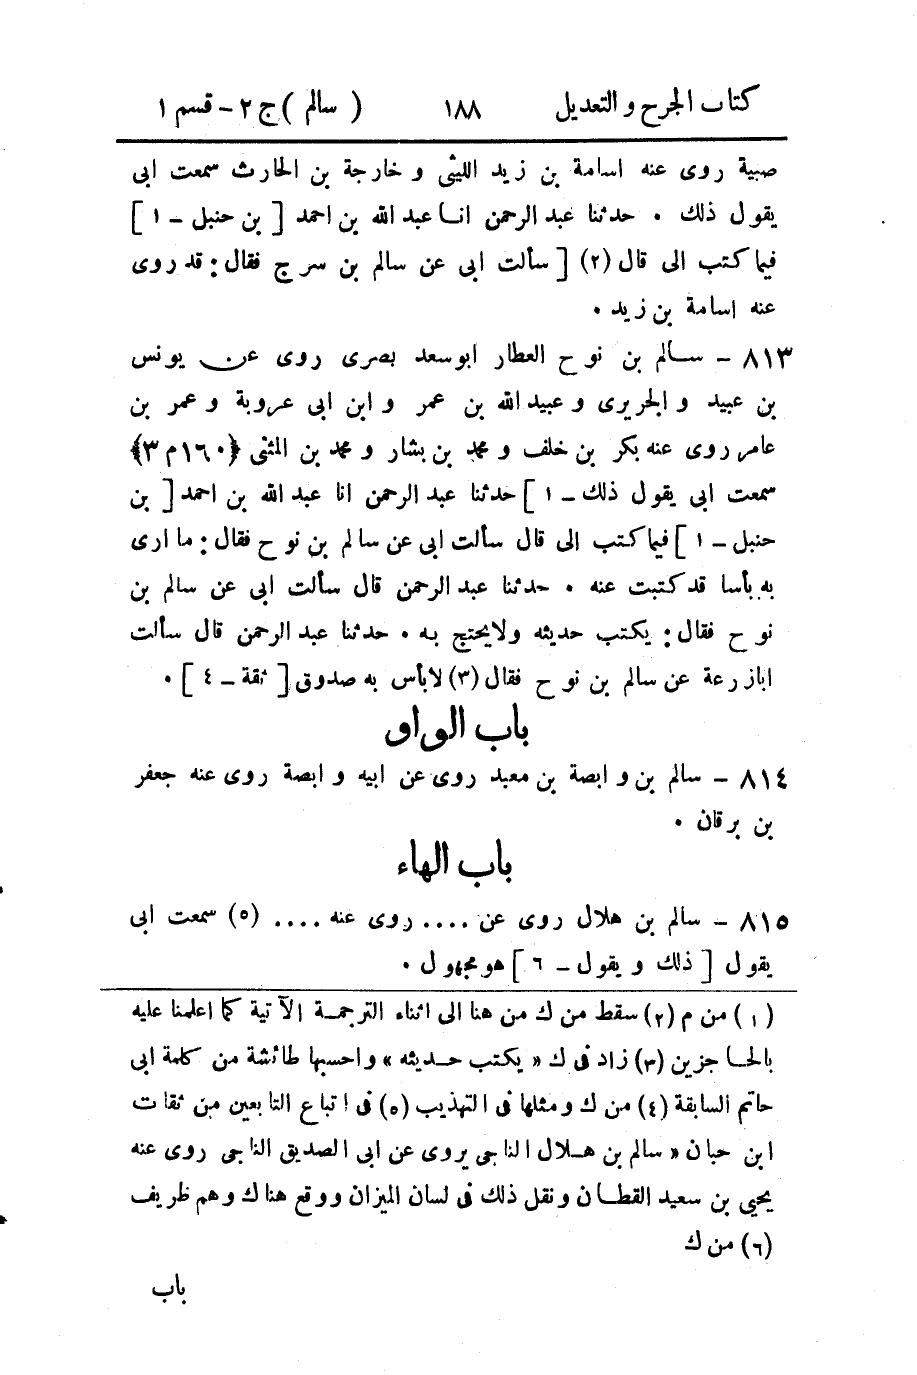 كتاب الجرح والتعديل ١٨٨ ( سالم ) ج ٢ - قسم ١
صبية روى عنه اسامة بن زيد الليثى و خارجة بن الحارث سمعت ابى
يقول ذلك . حدثنا عبد الرحمن انا عبد الله بن احمد [ بن حنبل - ١ ]
فيما كتب الى قال (٢) [ سألت ابى عن سالم بن سرج فقال : قد روى
عنه اسامة بن زيد .
٨١٣ - سالم بن نوح العطار ابو سعد بصرى روى عن يونس
بن عبيد و الجريرى و عبيد الله بن عمر و ابن ابى عروبة و عمر بن
عامر روى عنه بكر بن خلف و محمد بن بشار و محمد بن المثنى ﴿١٦٠ م ٣﴾
سمعت ابى يقول ذلك - ١ ] حدثنا عبد الرحمن انا عبد الله بن احمد [ بن
حنبل - ١ ] فيما كتب الى قال سألت ابى عن سالم بن نوح فقال : ما ارى
به بأسا قد كتبت عنه . حدثنا عبد الرحمن قال سألت ابى عن سالم بن
نوح فقال : يكتب حديثه ولا يحتج به . حدثنا عبد الرحمن قال سألت
ابا زرعة عن سالم بن نوح فقال (٣) لا بأس به صدوق [ ثقة - ٤ ] .
باب الواو
٨١٤ - سالم بن وابصة بن معبد روى عن ابيه وابصة روى عنه جعفر
بن برقان .
باب الهاء
٨١٥ - سالم بن هلال روى عن .... روى عنه .... (٥) سمعت ابى
يقول [ ذلك و يقول - ٦ ] هو مجهول .
(١) من م (٢) سقط من ك من هنا الى اثناء الترجمة الآتية كما اعلمنا عليه
بالحاجزين (٣) زاد فى ك « يكتب حديثه » واحسبها طائشة من كلمة ابى
حاتم السابقة (٤) من ك ومثلها فى التهذيب (٥) فى اتباع التابعين من ثقات
ابن حبان « سالم بن هلال الناجى يروى عن ابى الصديق الناجى روى عنه
يحيى بن سعيد القطان ونقل ذلك فى لسان الميزان ووقع هناك وهم ظريف
(٦) من ك
باب